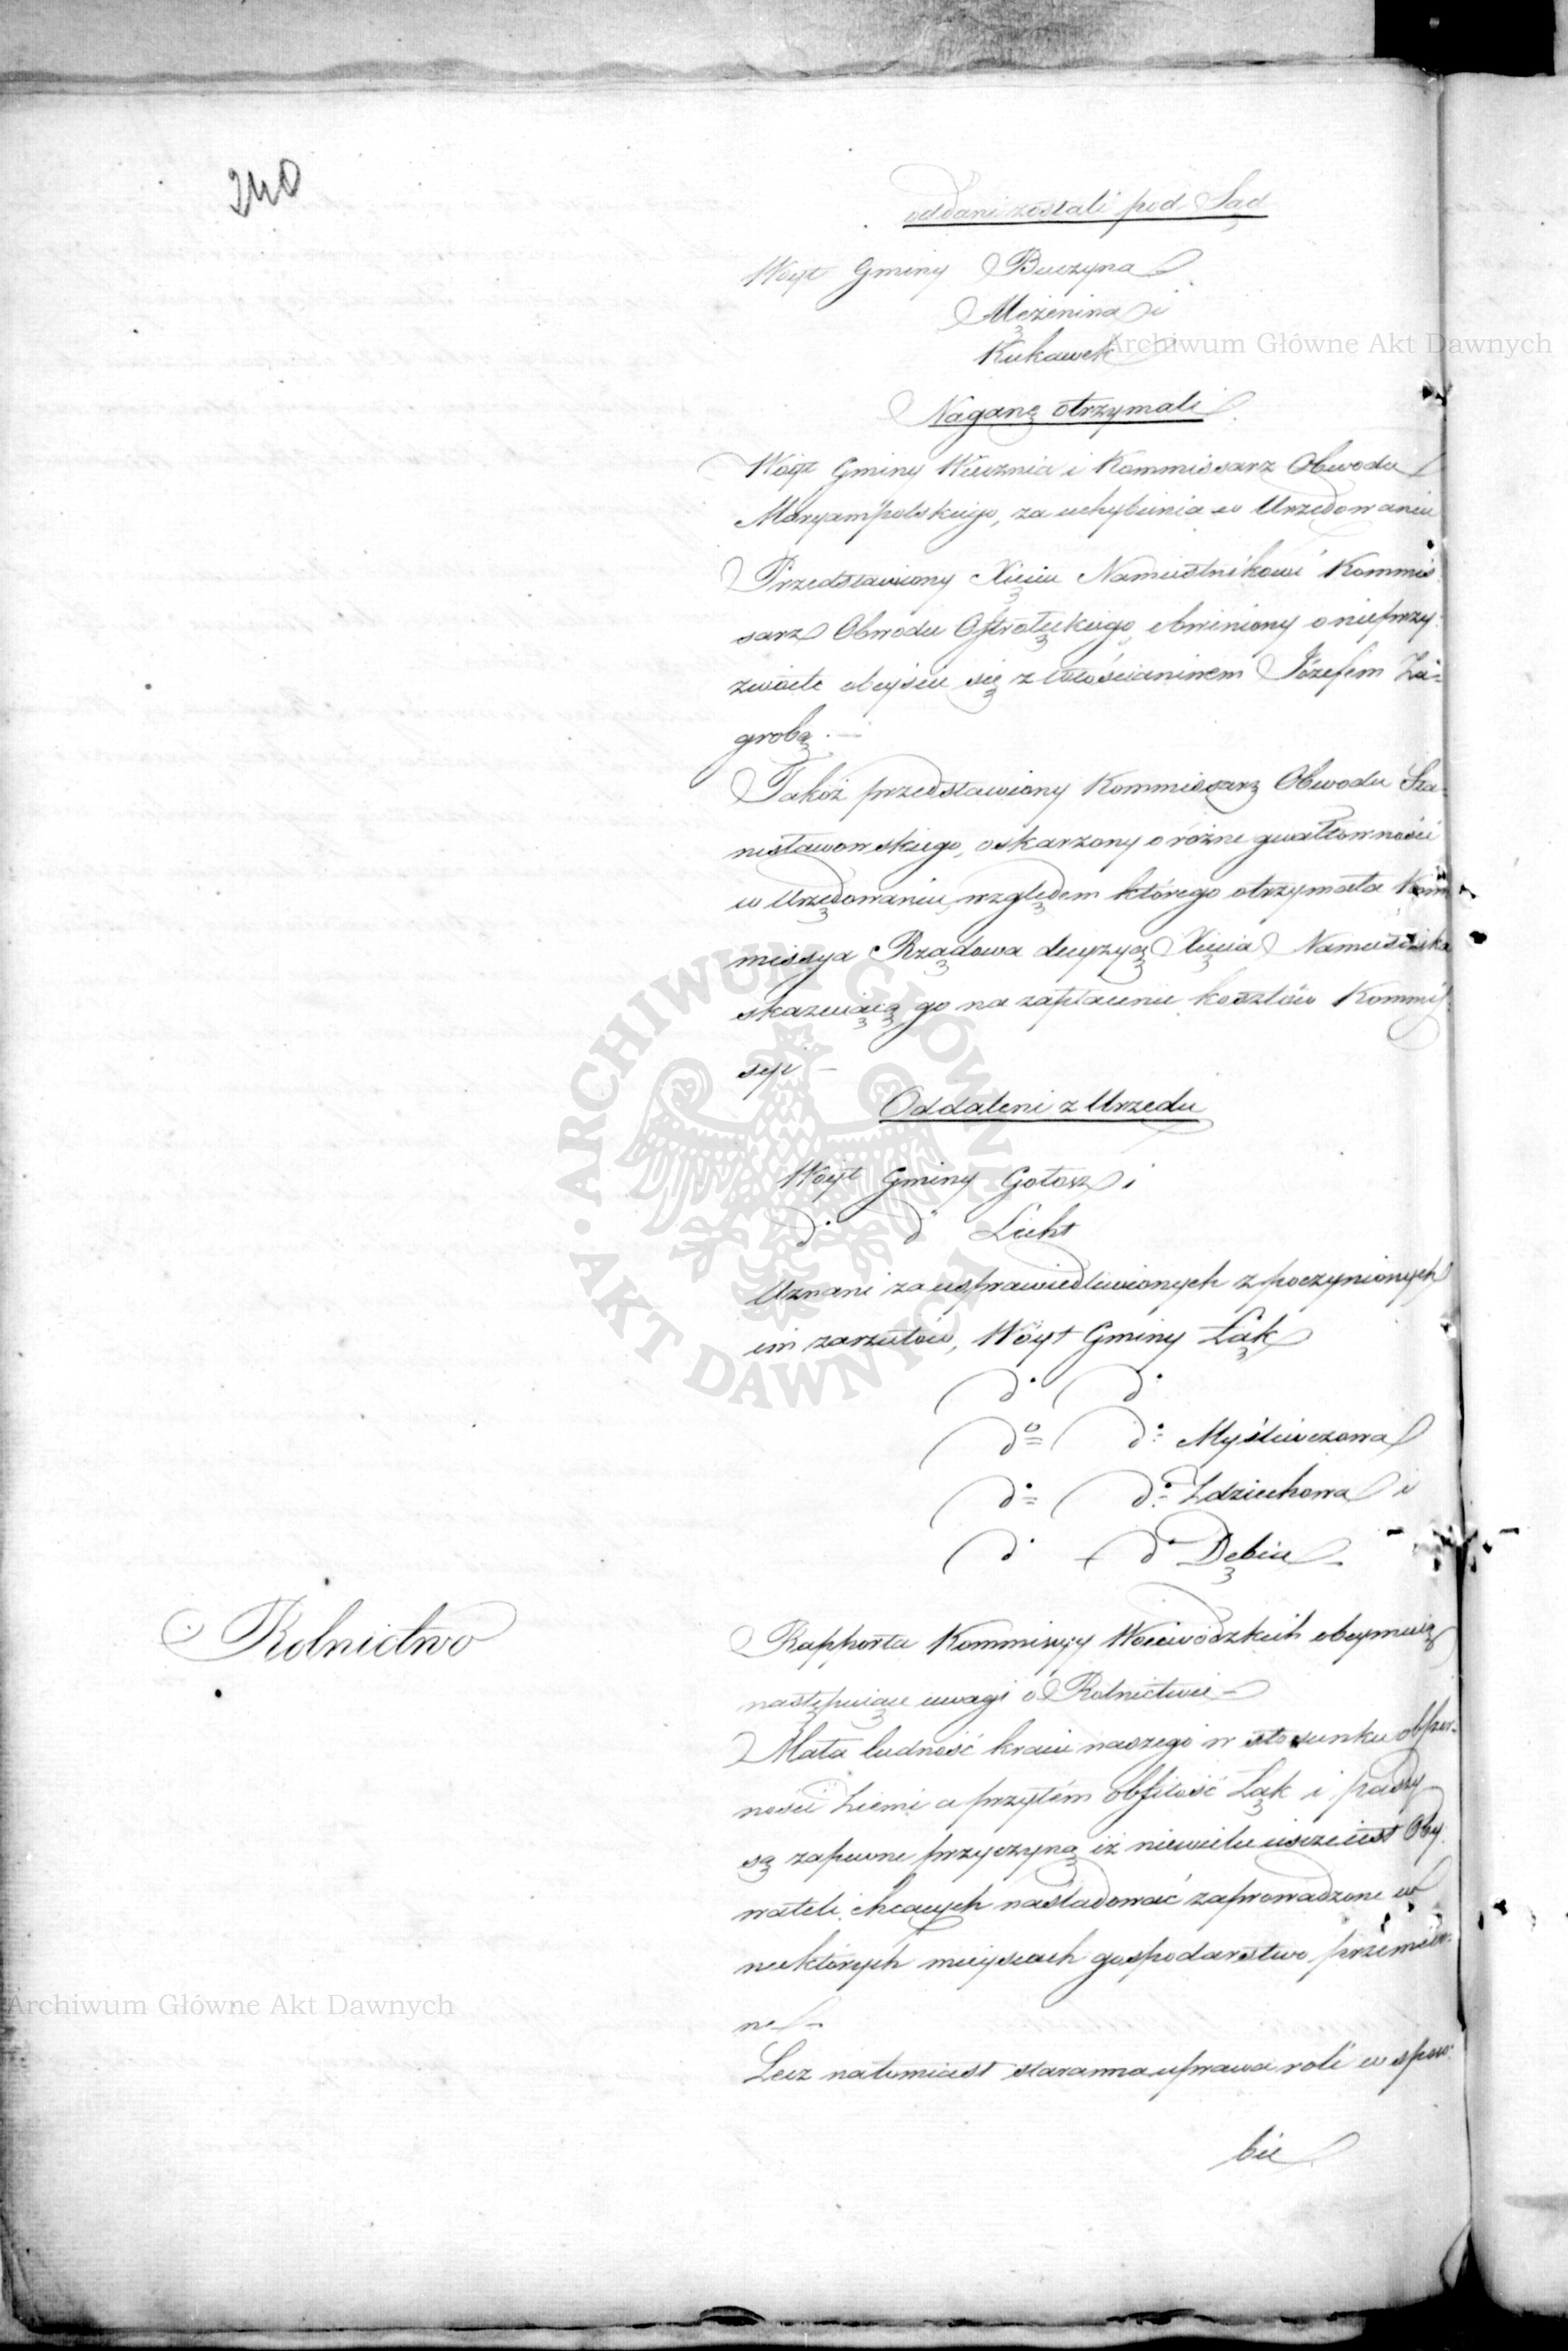 240
oddani zostali pod Sąd
Woyt Gminy Buczyna
Mężenina i
Kukawek
Archiwum Główne Akt Dawnych
Naganę otrzymali
Woyt Gminy Wiecznia i Kommissarz Obwodu
Maryampolskiego, za uchybienia w Urzędowaniu
Przedstawiony Xięciu Namiestnikowi Kommis
sarz Obwodu Ostrołęckiego, obwiniony o nieprzy
zwoite obeyście się z włościaninem Józefem Za=
grobą.
Takoż przedstawiony Kommissarz Obwodu Sta=
nisławowskiego, oskarżony o różne gwałtowności
w Urzędowaniu, względem którego otrzymała Kom
missya Rządowa decyzyą Xięcia Namiestnika
skazuiącą go na zapłacenie kosztów Kommis
syi
Oddaleni z Urzędu
Woyt Gminy Gołosz i
do do Lucht
Uznani za usprawiedliwionych z poczynionych
im zarzutów, Woyt Gminy Łąk
do do
do do Myśliwczowa
do do Zdziechowa i
do do Dębia
Rolnictwo
Rapporta Kommissyy Woiewódzkich obeymuią
następuiące uwagi o Rolnictwie
Mała ludność kraiu naszego w stosunku obszer=
ności ziemi a przytém obfitość Łąk i paszy
są zapewne przyczyną iż niewielu ieszcze iest Oby
wateli chcących naśladować zaprowadzone w
niektórych mieyscach gospodarstwo przemien=
ne
Archiwum Główne Akt Dawnych
Lecz natomiast staranna uprawa roli w sposo
bie
ARCHIWUM GŁÓWNE AKT DAWNYCH